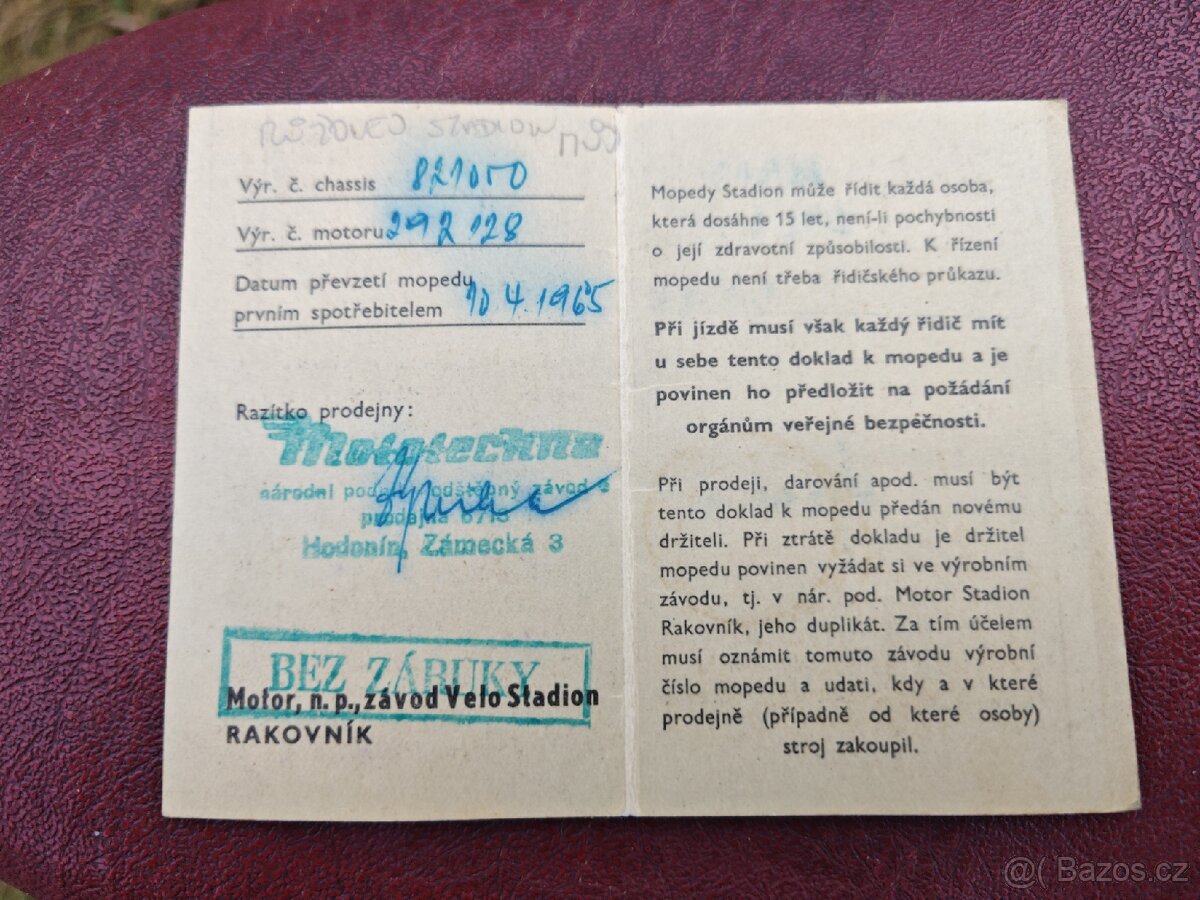 RŮŽOVEJ STADION
Výr. č. chassis 821050
Výr. č. motoru 292 128
Datum převzetí mopedu
prvním spotřebitelem 10.4.1965
Razítko prodejny:
Mototechna
národní odštěpný závod
prodejna
Hodonín, Zámecká 3
BEZ ZÁRUKY
Motor, n. p., závod Velo Stadion
RAKOVNÍK
Mopedy Stadion může řídit každá osoba,
která dosáhne 15 let, není-li pochybnosti
o její zdravotní způsobilosti. K řízení
mopedu není třeba řidičského průkazu.
Při jízdě musí však každý řidič mít
u sebe tento doklad k mopedu a je
povinen ho předložit na požádání
orgánům veřejné bezpečnosti.
Při prodeji, darování apod. musí být
tento doklad k mopedu předán novému
držiteli. Při ztrátě dokladu je držitel
mopedu povinen vyžádat si ve výrobním
závodu, tj. v nár. pod. Motor Stadion
Rakovník, jeho duplikát. Za tím účelem
musí oznámit tomuto závodu výrobní
číslo mopedu a udati, kdy a v které
prodejně (případně od které osoby)
stroj zakoupil.
@( Bazos.cz